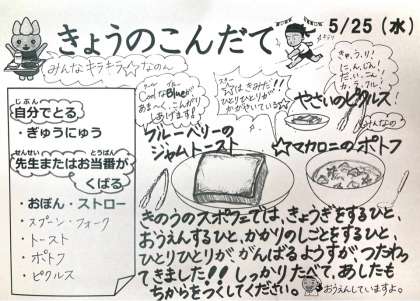 きょうのこんだて
5/25（水）
みんなキラキラ☆なのん
Cool な Blue が
あま〜く、こんがり
あげます!
スター
はきみだ!!
ひとりひとりが
かがやいている☆
きゅう,り!
に,ん,じん!
だ,い,こん!
か,ぶ,ブル!
やさいのピクルス!
みんなの
ブルーベリーの
ジャムトースト
☆マカロニのポトフ
じぶん
自分でとる
・ぎゅうにゅう
せんせい とうばん
先生またはお当番が
くばる
・おぼん・ストロー
・スプーン・フォーク
・トースト
・ポトフ
・ピクルス
きのうのスポフェでは、きょうぎをするひと、
おうえんするひと、かかりのしごとをするひと、
ひとりひとりが、がんばるようすが、つたわっ
てきました!! しっかりたべて、あしたも
ちからをつくしてください。
おうえんしていますよ。